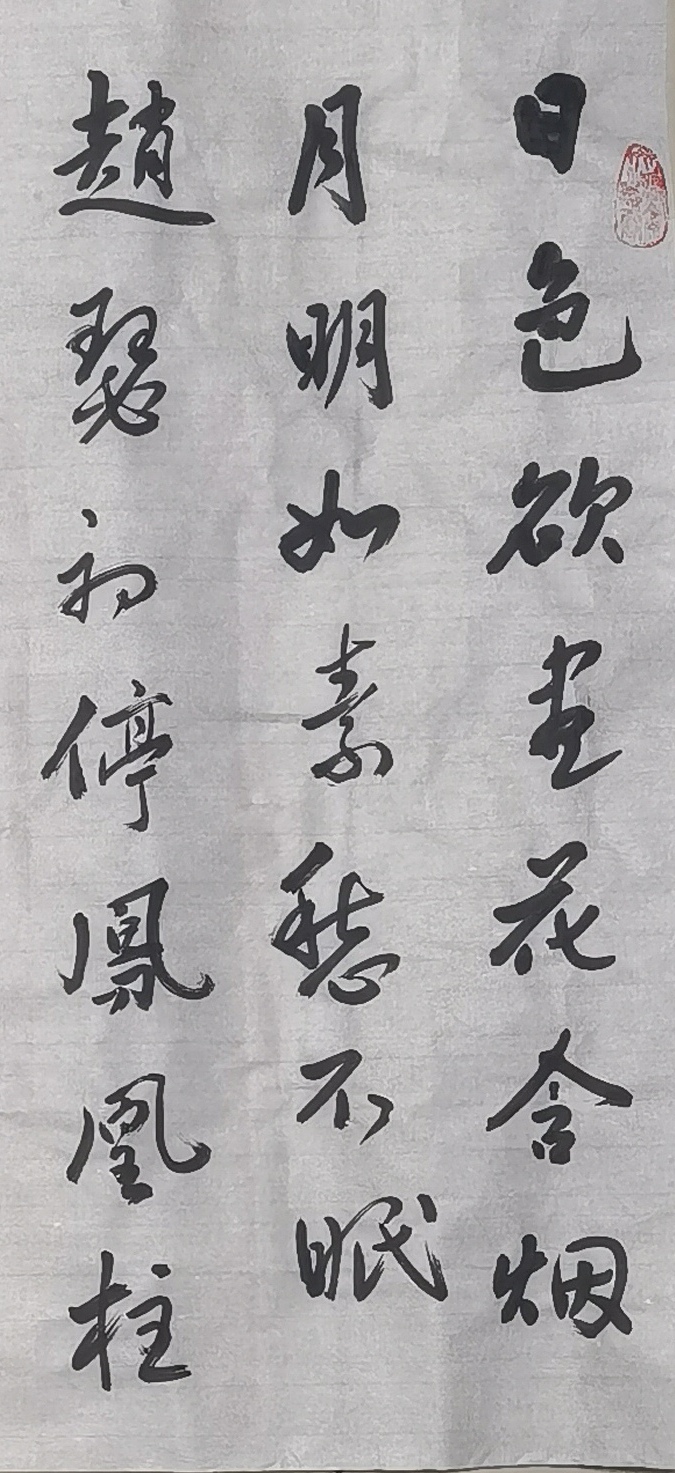 日色欲尽花含烟
月明如素愁不眠
趙瑟初停鳳凰柱